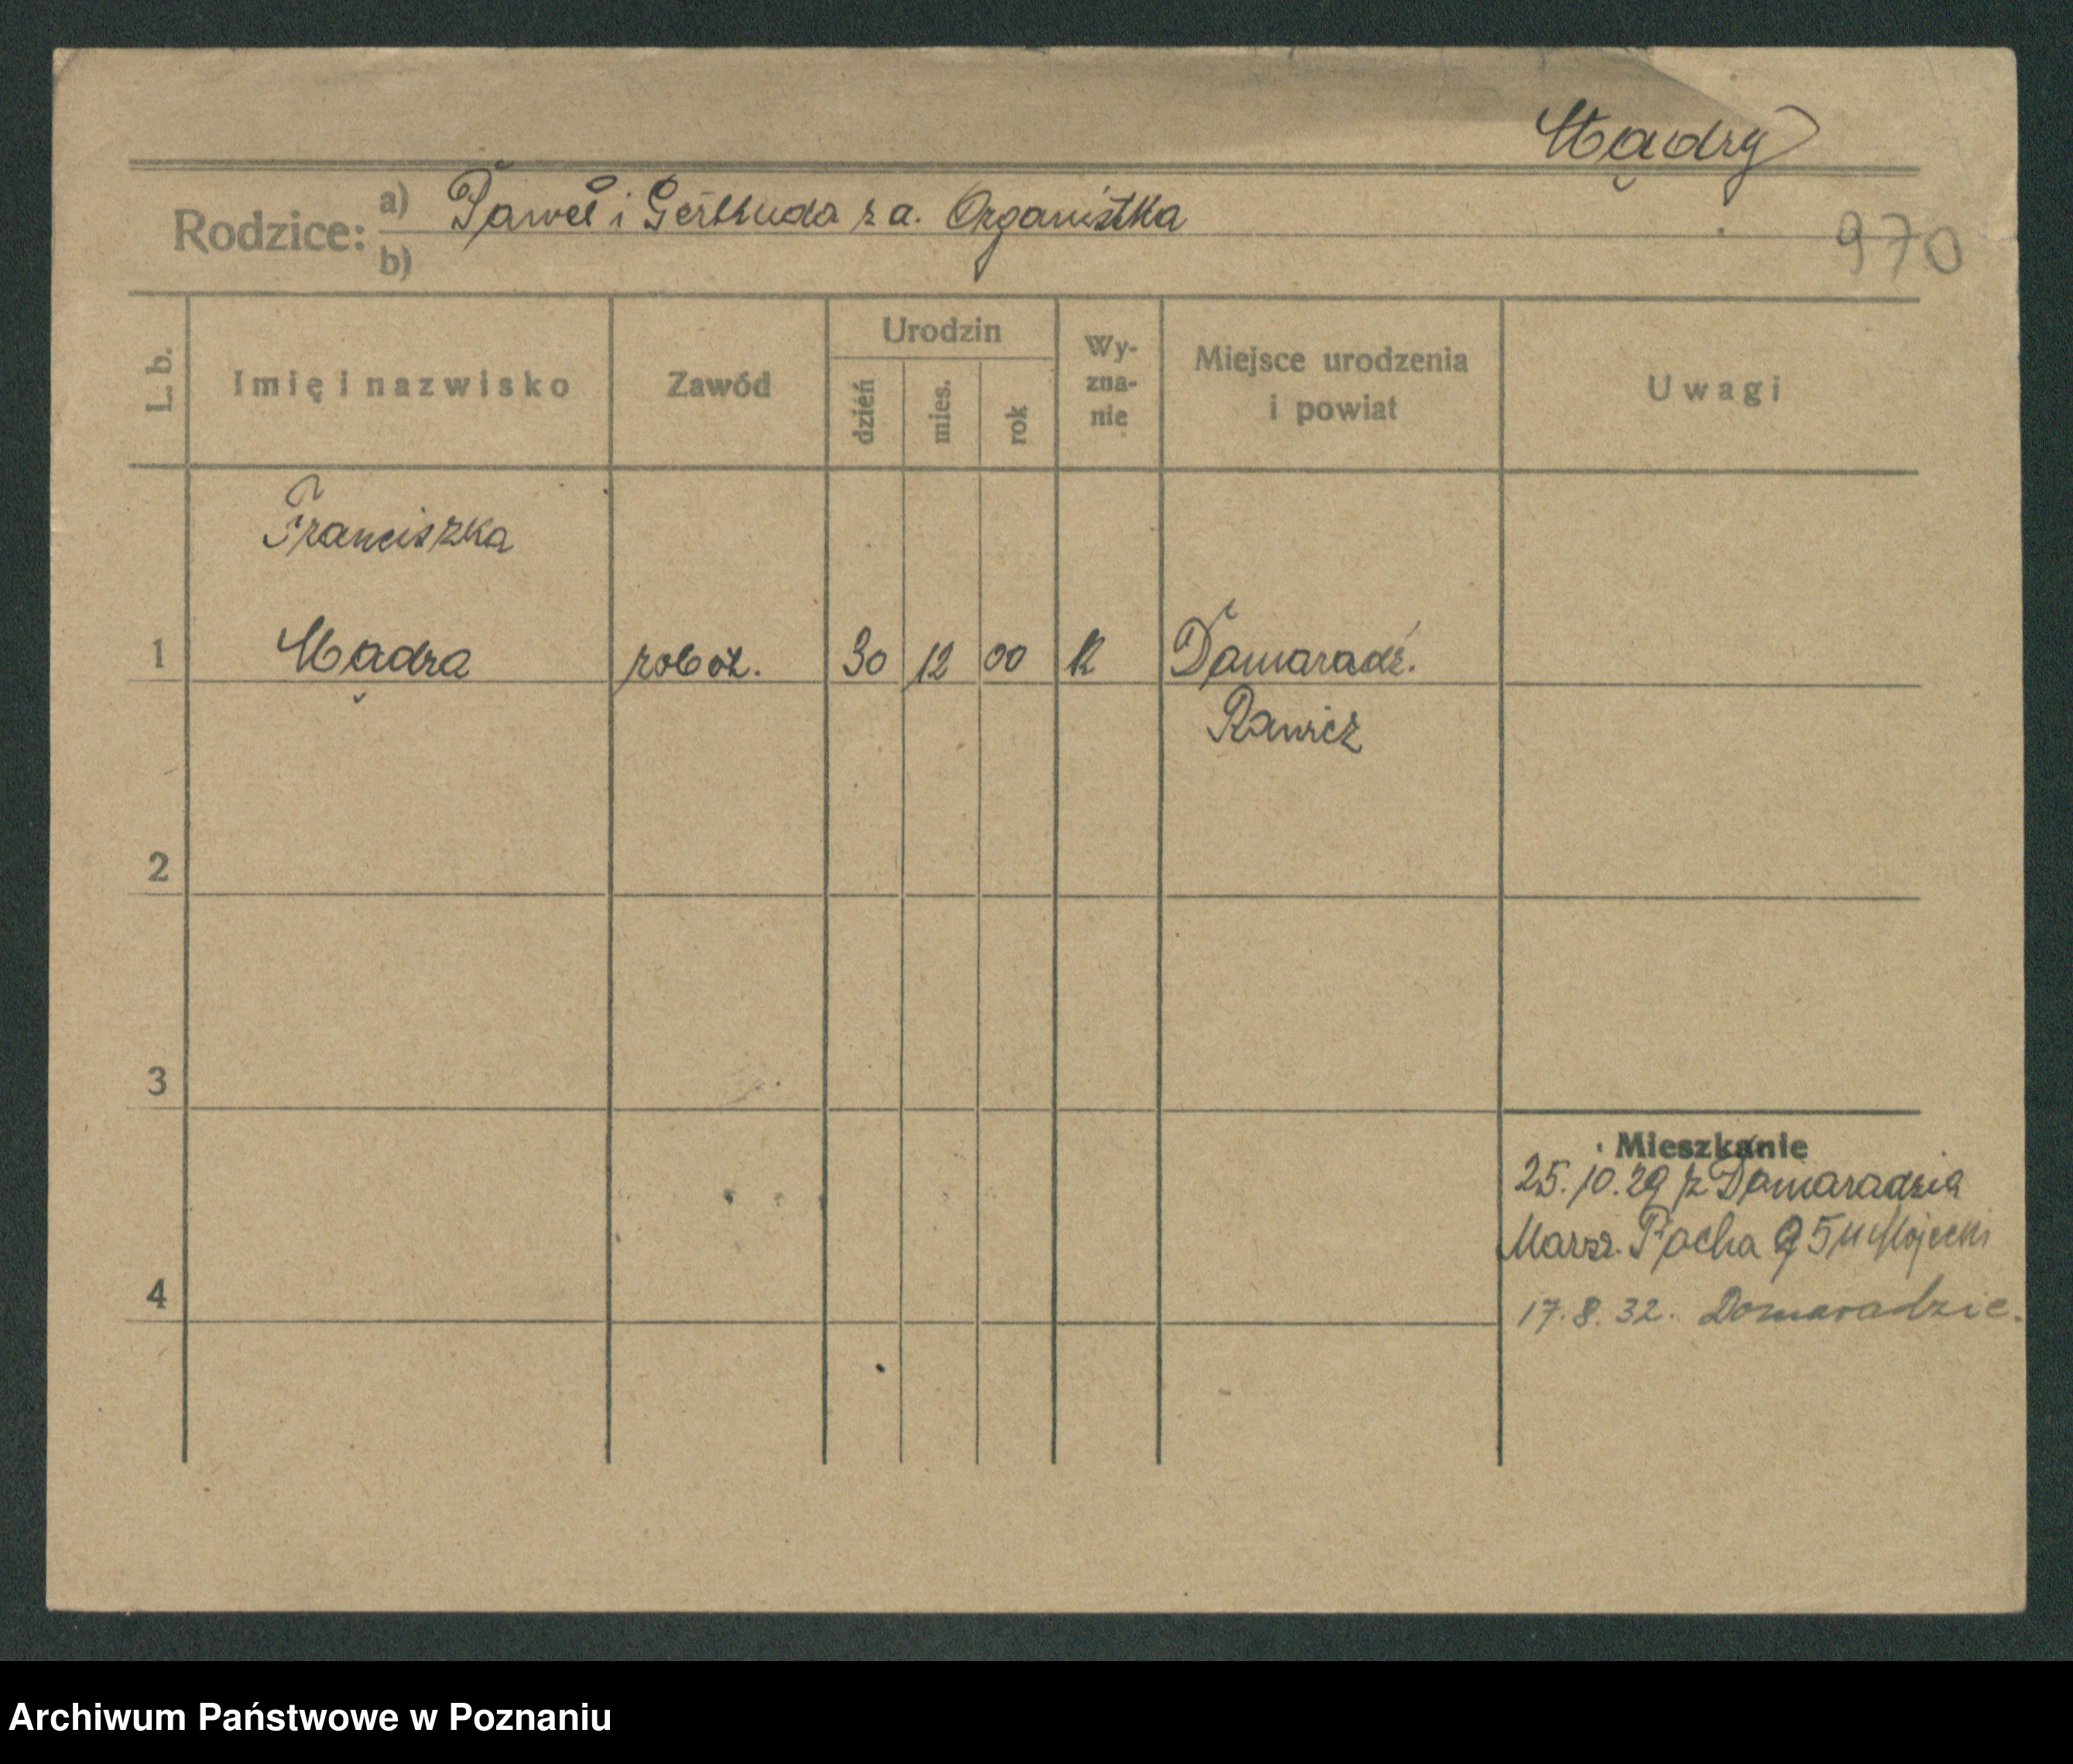 Mądry
Rodzice: a) Paweł i Gertruda z a. Organistka
b)
970
L. b.
Imię i nazwisko
Zawód
Urodzin
dzień
mies.
rok
Wy-
zna-
nie
Miejsce urodzenia
i powiat
Uwagi
Franciszka
1 Mądra robot. 30 12 00 K Damaradz.
Rawicz
2
3
Mieszkanie
25.10.29 z Damaradzia
Marsz. Focha 95
4
17.8.32. Domaradzic.
Archiwum Państwowe w Poznaniu